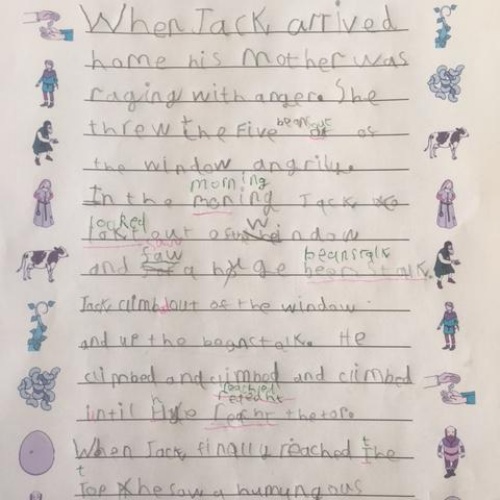 When Jack arrived
home his Mother was
raging with anger. She
threw the five beans out of
the window angrily.
morning
In the moning Jack
looked W
out of window
saw beanstalk
and a huge beanstalk.
Jack climbd out of the window
and up the beanstalk. He
climbed and climbed and climbed
reached
until the top.
When Jack finally reached the
t
Top he saw a humungous